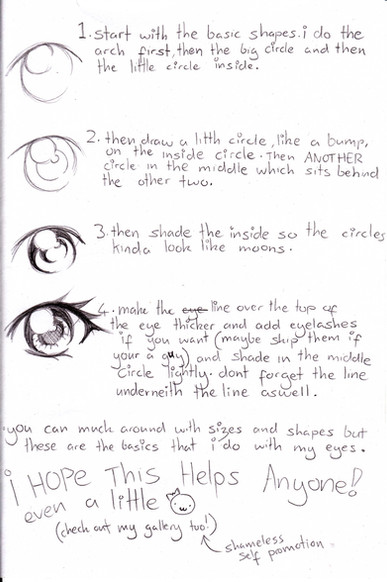 1. start with the basic shapes. i do the
arch first, then the big circle and then
the little circle inside.
2. then draw a litth circle, like a bump,
on the inside circle. Then ANOTHER
circle in the middle which sits behind
the other two.
3. then shade the inside so the circles
kinda look like moons.
4. make the eye line over the top of
the eye thicker and add eyelashes
if you want (maybe skip them if
your a guy) and shade in the middle
circle lightly. dont forget the line
underneith the line aswell.
you can much around with sizes and shapes but
these are the basics that i do with my eyes.
i HOPE This Helps Anyone!!
even a little
(check out my gallery too!)
shameless
self promotion.